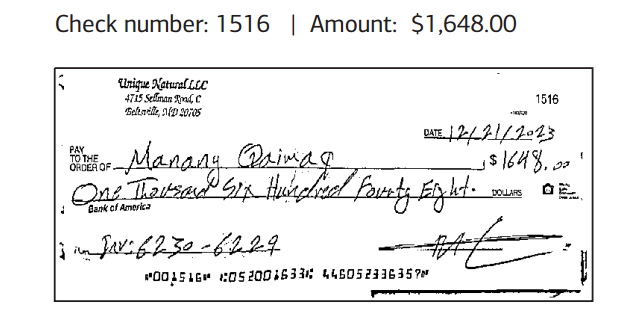 Check number: 1516 | Amount: $1,648.00
Unique Natural LLC
4715 Sellman Road, C
Beltsville, MD 20705
1516
DATE 12/21/2023
PAY
TO THE
ORDER OF Manany $ 1648.00
One Thousand Six Hundred Fourty Eight. DOLLARS
Bank of America
Inv: 6230-6229
⑈001516⑈ ⑆052001633⑆ 446052336357⑈